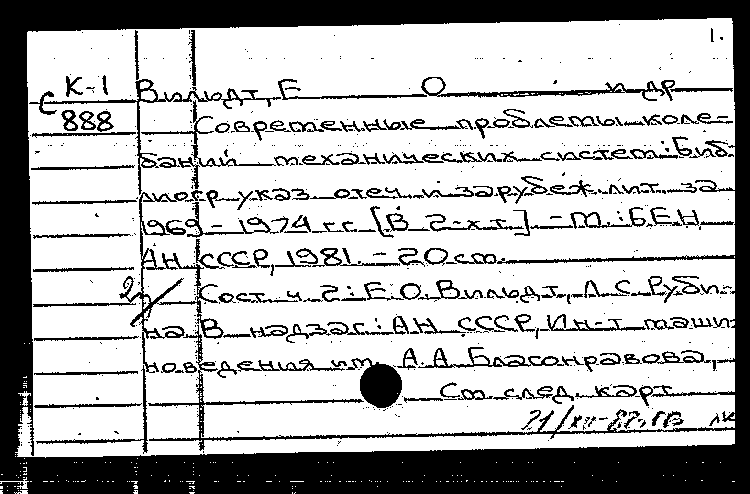 1.
К-1 Вильдт, Е О и др
С 888 Современные проблемы коле-
баний механических систем: Биб-
лиогр указ. отеч и зарубеж. лит. за
1969 - 1974 гг. [В 2-х т.]. - М.: БЕН
АН СССР, 1981. - 20 см.
Сост. ч. 2: Е. О. Вильдт, Л. С. Руби-
на В надзаг: АН СССР, Ин-т маши-
новедения им. А. А. Благонравова,
См след. карт